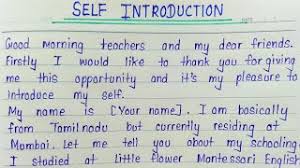 SELF INTRODUCTION
Good morning teachers and my dear friends.
Firstly I would like to thank you for giving
me this opportunity and it's my pleasure to
introduce my self.
My name is [Your name]. I am basically
from Tamilnadu but currently residing at
Mombai. Let me tell you about my schooling
I studied at Little flower Montessori English